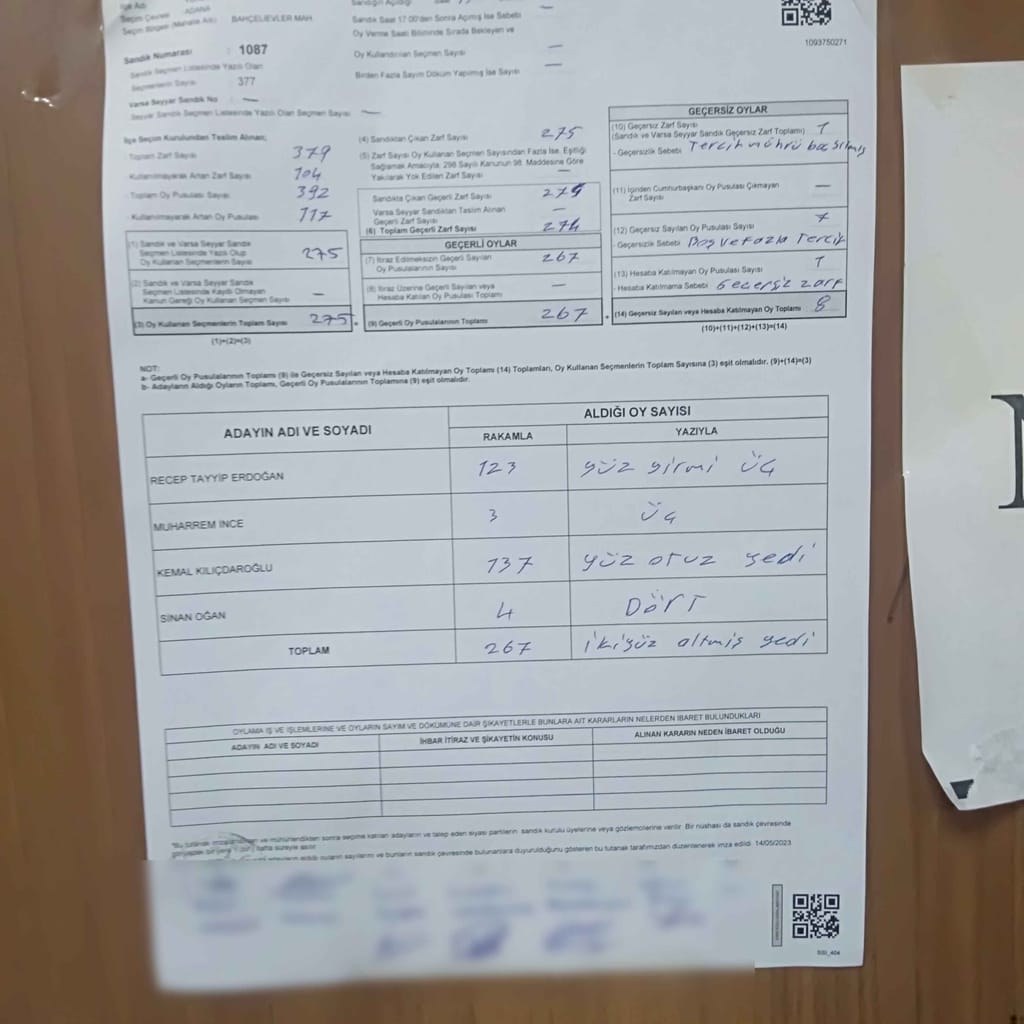 İlçe Adı
Seçim Çevresi ADANA
Seçim Bölgesi (Mahalle Adı) : BAHÇELİEVLER MAH.
Sandık Numarası : 1087
Sandık Seçmen Listesinde Yazılı Olan
Seçmenlerin Sayısı : 377
Varsa Seyyar Sandık No : —
Seyyar Sandık Seçmen Listesinde Yazılı Olan Seçmen Sayısı : —
Sandığın Açıldığı
Sandık Saat 17.00'den Sonra Açılmış İse Sebebi —
Oy Verme Saati Bitiminde Sırada Bekleyen ve
Oy Kullandırılan Seçmen Sayısı —
Birden Fazla Sayım Döküm Yapılmış İse Sayısı —
1093750271
İlçe Seçim Kurulundan Teslim Alınan;
Toplam Zarf Sayısı 379
Kullanılmayarak Artan Zarf Sayısı 104
- Toplam Oy Pusulası Sayısı 392
- Kullanılmayarak Artan Oy Pusulası 117
(1) Sandık ve Varsa Seyyar Sandık
Seçmen Listesinde Yazılı Olup
Oy Kullanan Seçmenlerin Sayısı 275
(2) Sandık ve Varsa Seyyar Sandık
Seçmen Listesinde Kayıtlı Olmayan
Kanun Gereği Oy Kullanan Seçmen Sayısı —
(3) Oy Kullanan Seçmenlerin Toplam Sayısı 275
(1)+(2)=(3)
(4) Sandıktan Çıkan Zarf Sayısı 275
(5) Zarf Sayısı Oy Kullanan Seçmen Sayısından Fazla İse, Eşitliği
Sağlamak Amacıyla, 298 Sayılı Kanunun 98. Maddesine Göre
Yakılarak Yok Edilen Zarf Sayısı —
Sandıkta Çıkan Geçerli Zarf Sayısı 274
Varsa Seyyar Sandıktan Teslim Alınan
Geçerli Zarf Sayısı —
(6) Toplam Geçerli Zarf Sayısı 274
GEÇERLİ OYLAR
(7) İtiraz Edilmeksizin Geçerli Sayılan
Oy Pusulalarının Sayısı 267
(8) İtiraz Üzerine Geçerli Sayılan ve
Hesaba Katılan Oy Pusulası Toplamı —
(9) Geçerli Oy Pusulalarının Toplamı 267
GEÇERSİZ OYLAR
(10) Geçersiz Zarf Sayısı 1
(Sandık ve Varsa Seyyar Sandık Geçersiz Zarf Toplamı)
- Geçersizlik Sebebi Tercih mührü basılmış
(11) İçinden Cumhurbaşkanı Oy Pusulası Çıkmayan
Zarf Sayısı —
(12) Geçersiz Sayılan Oy Pusulası Sayısı 7
- Geçersizlik Sebebi Boş ve Fazla Tercih
(13) Hesaba Katılmayan Oy Pusulası Sayısı 1
- Hesaba Katılmama Sebebi Geçersiz zarf
(14) Geçersiz Sayılan veya Hesaba Katılmayan Oy Toplamı 8
(10)+(11)+(12)+(13)=(14)
NOT:
a- Geçerli Oy Pusulalarının Toplamı (9) ile Geçersiz Sayılan veya Hesaba Katılmayan Oy Toplamı (14) Toplamları, Oy Kullanan Seçmenlerin Toplam Sayısına (3) eşit olmalıdır. (9)+(14)=(3)
b- Adayların Aldığı Oyların Toplamı, Geçerli Oy Pusulalarının Toplamına (9) eşit olmalıdır.
ADAYIN ADI VE SOYADI ALDIĞI OY SAYISI
RAKAMLA YAZIYLA
RECEP TAYYİP ERDOĞAN 123 yüz yirmi üç
MUHARREM İNCE 3 üç
KEMAL KILIÇDAROĞLU 137 yüz otuz yedi
SİNAN OĞAN 4 DÖRT
TOPLAM 267 ikiyüz altmış yedi
OYLAMA İŞ VE İŞLEMLERİNE VE OYLARIN SAYIM VE DÖKÜMÜNE DAİR ŞİKAYETLERLE BUNLARA AİT KARARLARIN NELERDEN İBARET BULUNDUKLARI
ADAYIN ADI VE SOYADI İHBAR İTİRAZ VE ŞİKAYETİN KONUSU ALINAN KARARIN NEDEN İBARET OLDUĞU
ve mühürlendikten sonra seçime katılan adayların ve talep eden siyasi partilerin sandık kurulu üyelerine veya gözlemcilerine verilir. Bir nüshası da sandık çevresinde
hafta süreyle asılır.
aldığı oyların sayılarını ve bunların sandık çevresinde bulunanlara duyurulduğunu gösteren bu tutanak tarafımızdan düzenlenerek imza edildi. 14/05/2023